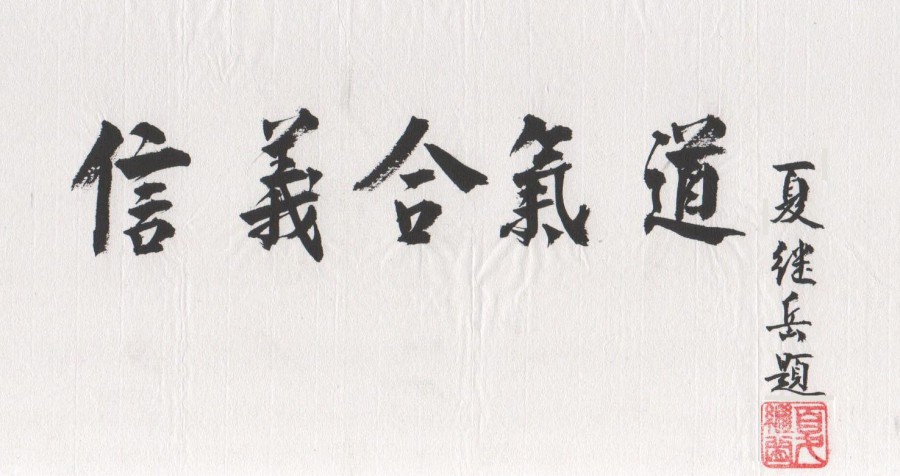 信義合氣道
夏继岳題